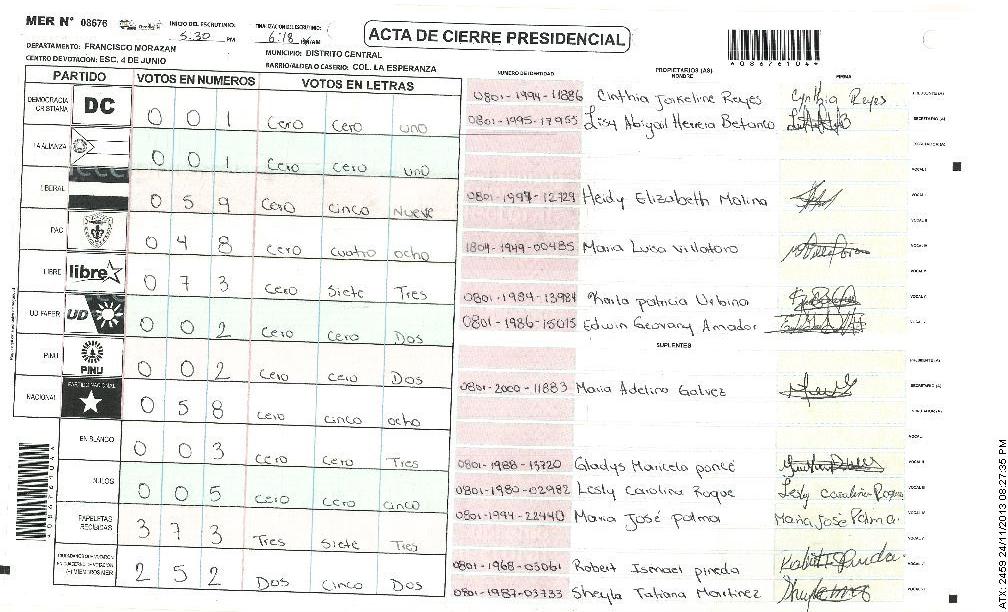 MER N° 08676
INICIO DEL ESCRUTINIO: 5:30 PM
FINALIZACION DEL ESCRUTINIO: 6:18 PM
ACTA DE CIERRE PRESIDENCIAL
DEPARTAMENTO: FRANCISCO MORAZAN
MUNICIPIO: DISTRITO CENTRAL
CENTRO DE VOTACION: ESC. 4 DE JUNIO
BARRIO/ALDEA O CASERIO: COL. LA ESPERANZA
PARTIDO VOTOS EN NUMEROS VOTOS EN LETRAS
DEMOCRACIA CRISTIANA DC 0 0 1 Cero Cero uno
LA ALIANZA 0 0 1 Cero Cero uno
LIBERAL 0 5 9 Cero Cinco Nueve
PAC 0 4 8 cero cuatro ocho
LIBRE libre 0 7 3 Cero Siete Tres
UD FAPER UD 0 0 2 Cero Cero Dos
PINU PINU 0 0 2 Cero Cero Dos
NACIONAL PARTIDO NACIONAL 0 5 8 Cero cinco ocho
EN BLANCO 0 0 3 Cero Cero Tres
NULOS 0 0 5 Cero Cero cinco
PAPELETAS RECIBIDAS 3 7 3 Tres Siete Tres
2 5 2 Dos Cinco Dos
NUMERO DE IDENTIDAD PROPIETARIOS (AS) NOMBRE FIRMA
0801-1994-11886 Cinthia Jackeline Reyes Cynthia Reyes PRESIDENTE (A)
0801-1995-17955 Lisy Abigail Herrera Betanco SECRETARIO (A)
ESCRUTADOR (A)
VOCAL I
0801-1997-12729 Heidy Elizabeth Molina
1804-1949-00485 Maria Luisa Villatoro
0801-1984-13984 Karla patricia Urbina
0801-1986-15015 Edwin Geovany Amador
SUPLENTES
PRESIDENTE (A)
0801-2000-11883 Maria Adelina Galvez SECRETARIO (A)
0801-1988-13720 Gladys Maricela ponce
0801-1980-02982 Lesly Carolina Roque
0801-1994-22440 Maria José palma Maria Jose Palma
0801-1968-03061 Robert Ismael pineda
0801-1987-03733 Sheyla Tatiana Martinez
ATX: 2459 24/11/2013 08:27:35 PM